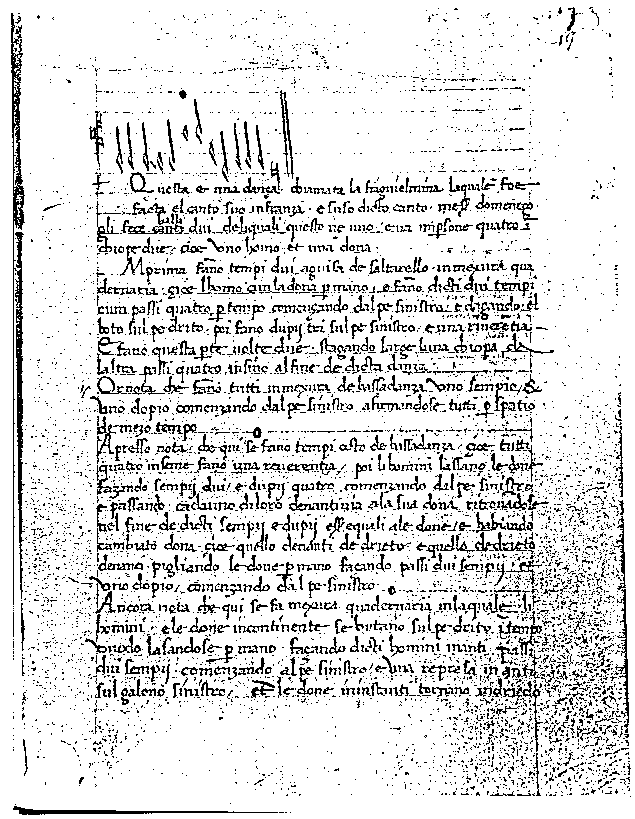 19
Questa e una danza chiamata la fraguielmina laquale foe
facta el canto suo in franza e suso dicto canto mess domenego
gli fece balli dui deli quali questo ne uno e va in persone quatro i
chiope due cioe uno homo et una dona
In prima fano tempi dui aguisa de saltarello in mexura qua
dernaria cioe lhomo cun la dona p mano e fano dicti dui tempi
cum passi quatro p tempo comenzando dal pe sinistro e digando el
voto sul pe drito poi fano dupii tri sul pe sinistro e una riverentia
E fano questa pte volte due stagando large luna chiopa da
laltra passi quatro insino al fine de dicta danza
Or nota che fano tutti in mexura de bassadanza uno sempio &
uno dopio comenzando dal pe sinistro afirmandose tutti p spatio
de mezo tempo
Apresso nota che qui se fano tempi octo de bassadanza cioe tutti
quatro insieme fano una reverentia poi li homini lassano le done
fazando sempii dui e dupii quatro comenzando dal pe sinistro
e passando cadauno di loro denantivia ala sua dona ritrovandose
nel fine de dicti sempii e dupii esse equali ale done e habiando
cambiato dona cioe quello denanti de drieto e quello de drieto
denanci pigliando le done p mano facando passi dui sempii et
uno dopio comenzando dal pe sinistro
Ancora nota che qui se fa mexura quadernaria in la quale li
homini e le done incontinente se butano sul pe drito p tempo
vuodo lasandose p mano façando dicti homini inanti passi
dui sempii comenzando al pe sinistro e una represa in anti
sul galono sinistro Et le done in instanti tornano indriedo